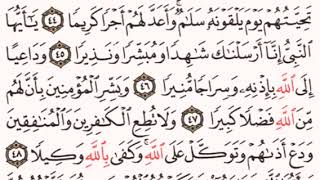 تَحِيَّتُهُمْ يَوْمَ يَلْقَوْنَهُۥ سَلَٰمٌ ۚ وَأَعَدَّ لَهُمْ أَجْرًا كَرِيمًا ٤٤ يَٰٓأَيُّهَا
ٱلنَّبِىُّ إِنَّآ أَرْسَلْنَٰكَ شَٰهِدًا وَمُبَشِّرًا وَنَذِيرًا ٤٥ وَدَاعِيًا
إِلَى ٱللَّهِ بِإِذْنِهِۦ وَسِرَاجًا مُّنِيرًا ٤٦ وَبَشِّرِ ٱلْمُؤْمِنِينَ بِأَنَّ لَهُم
مِّنَ ٱللَّهِ فَضْلًا كَبِيرًا ٤٧ وَلَا تُطِعِ ٱلْكَٰفِرِينَ وَٱلْمُنَٰفِقِينَ
وَدَعْ أَذَىٰهُمْ وَتَوَكَّلْ عَلَى ٱللَّهِ ۚ وَكَفَىٰ بِٱللَّهِ وَكِيلًا ٤٨